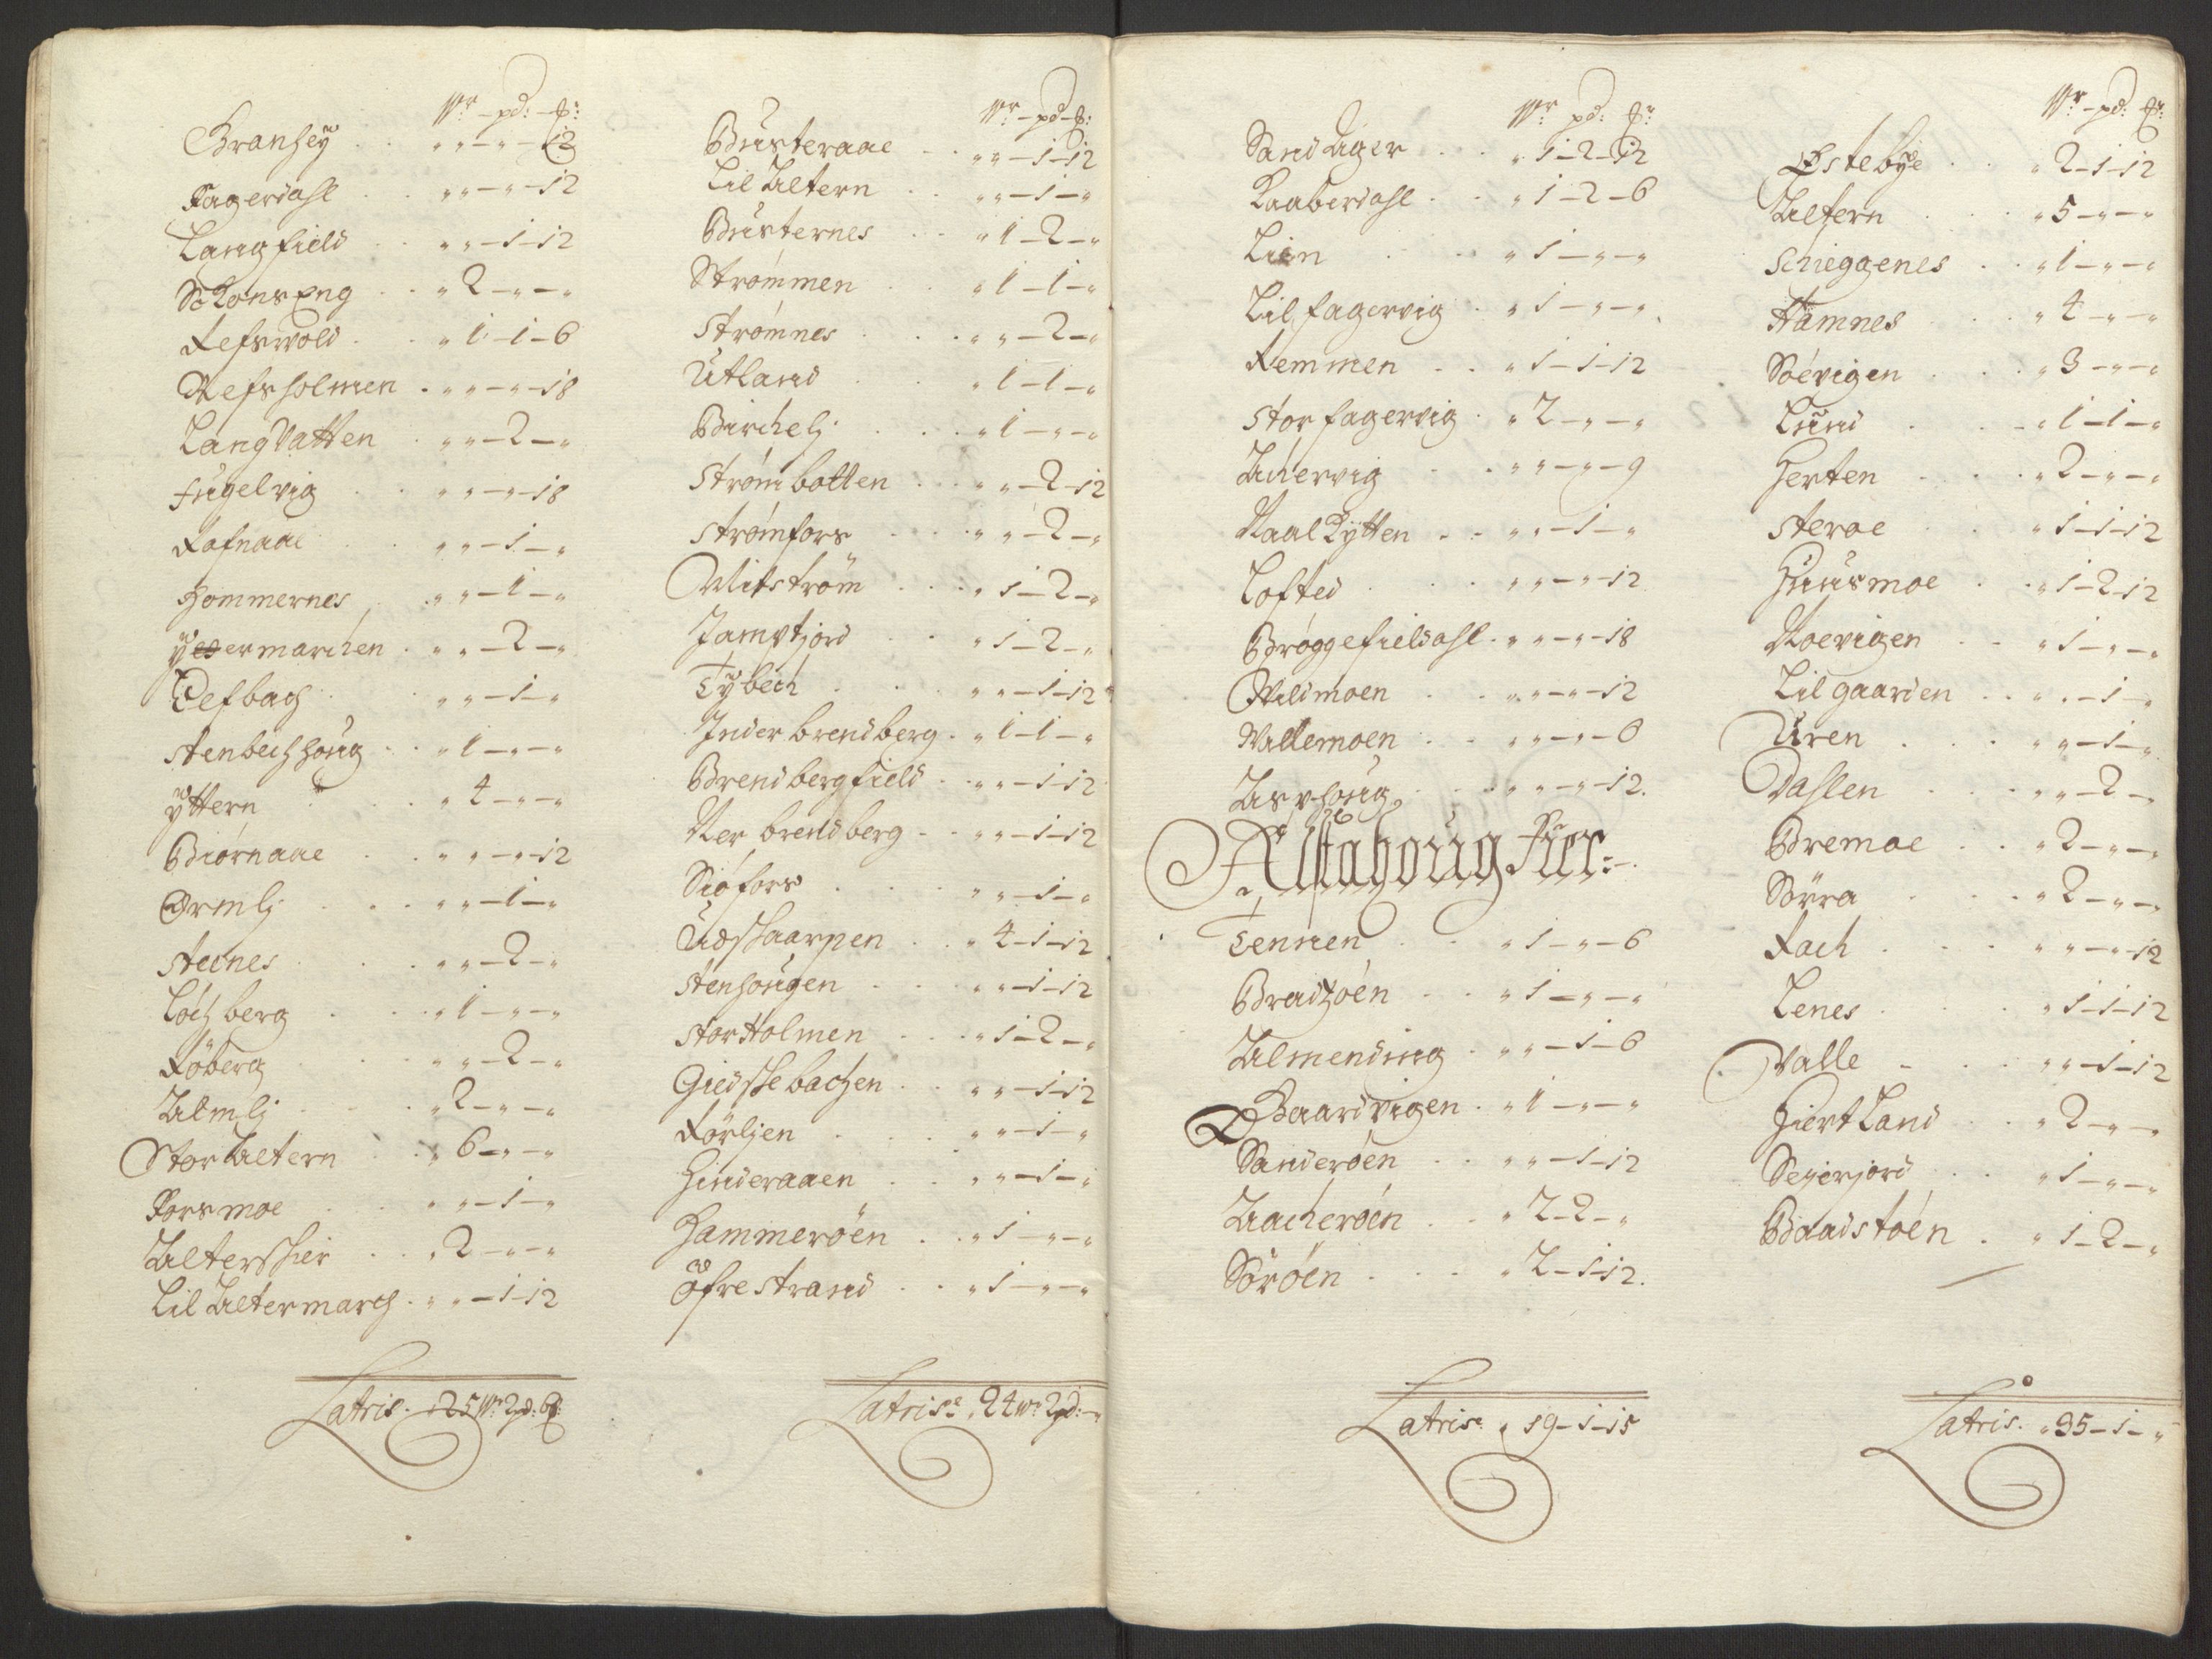 Wr - pd: - £:
Granhey . . „ „ - „ - 12
Fagerdahl . . „ „ - „ - 12
Langfield . . „ „ - 1 - 12
SkonsEng . . „ 2 - „ - „
Refswold . . „ 1 - 1 - 6
Refsholmen . „ „ - „ - 18
LangVatten . „ „ - 2 - „
Fugelvig . . „ „ - „ - 18
Rafnaae . . „ „ - 1 - „
Hommernes . „ „ - 1 - „
ydermarchen . „ „ - 2 - „
Defbach . „ „ - 1 - „
Stenbechhoug . . „ 1 - „ - „
yttern . . „ 4 - „ - „
Biørnaae . . „ „ - „ - 12
Ormlj . . „ „ - 1 - „
Steenes . . „ „ - 2 - „
Løchberg . . „ 1 - „ - „
Røberg . . „ „ - 2 - „
Almlj . . „ 2 - „ - „
Stor Altern . . „ 6 - „ - „
Forsmoe . . „ „ - 1 - „
Alterskier . . „ 2 - „ - „
Lil Altermarch . „ „ - 1 - 12
Latris. „ 25 Wr 2 pd: 6 £:
Wr - pd - £:
Busteraae . . „ „ - 1 - 12
Lil Altern . . „ „ - 1 - „
Busternes . . „ 1 - 2 - „
Strømmen . . „ 1 - 1 - „
Strømnes . . „ „ - 2 - „
Utland . . „ 1 - 1 - „
Birchelj . . „ 1 - „ - „
Strømbotten . . „ „ - 2 - 12
Strømfors . . „ „ - 2 - „
Mitstrøm . . „ 1 - 2 - „
Jamtjord . . „ 1 - 2 - „
Tybech . . „ „ - 1 - 12
Inderbrendberg . „ 1 - 1 - „
Brendbergfield . „ „ - 1 - 12
Nerbrendberg . . „ „ - 1 - 12
Siøfors . . „ „ - 1 - „
Udskaarpen . . „ 4 - 1 - 12
Stenhougen . . „ „ - 1 - 12
StorHolmen . . „ 1 - 2 - „
Giedskebachen . . „ „ - 1 - 12
Rørljen . . „ „ - 1 - „
Hinderaaen . . „ „ - 1 - „
Hammerøen . . „ 1 - „ - „
Øfrestrand . . „ 1 - „ - „
Latris: „ 24 Wr 2 pd: - „
Wr pd: £:
Sandager . . „ 1 - 2 - 12
Raaberdahl . . „ 1 - 2 - 6
Lien . . „ 1 - „ - „
Lil fagervig . „ 1 - „ - „
Remmen . . „ 1 - 1 - 12
Stor fagervig . „ 2 - „ - „
Akervig . . „ „ - „ - 9
Naal Rytten . . „ „ - 1 - „
Lofted . . „ „ - „ - 12
Brøggefieldahl . „ „ - „ - 18
Wildmoen . . „ „ - „ - 12
Wallemoen . . „ „ - „ - 6
Asphoug . . „ „ - „ - 12.
Alstahoug Fier:
Tennen . . „ 1 - „ - 6
Bradzøen . . „ 1 - „ - „
Almending . „ „ - 1 - 6
Baardvigen . „ 1 - „ - „
Sanderøen . . „ „ - 1 - 12
Aacherøen . . „ 2 - 2 - „
Sørøen . . „ 2 - 1 - 12.
Latris: „ 19 - 1 - 15
Wr - pd: £:
Østebye . . „ 2 - 1 - 12
Altern . . „ 5 - „ - „
Schieggenes . . „ 1 - „ - „
Hamnes . . „ 4 - „ - „
Søevigen . . „ 3 - „ - „
Lund . . „ 1 - 1 - „
Herten . . „ 2 - „ - „
Steroe . . „ 1 - 1 - 12
Huusmoe . . „ 1 - 2 - 12
Noevigen . . „ 1 - „ - „
Lil gaarden . . „ „ - 1 - „
Uren . . „ „ - 1 - „
Dahlen . . „ „ - 2 - „
Bremoe . . „ 2 - „ - „
Sørra . . „ 2 - „ - „
Rach . . „ „ - „ - 12
Lenes . . „ 1 - 1 - 12
Valle . . „ „ - 1 - 12
Hiertland . . „ 2 - „ - „
Seyerjord . . „ 1 - „ - „
Baadstøen . „ 1 - 2 - „
Latris. „ 35 - 1 - „